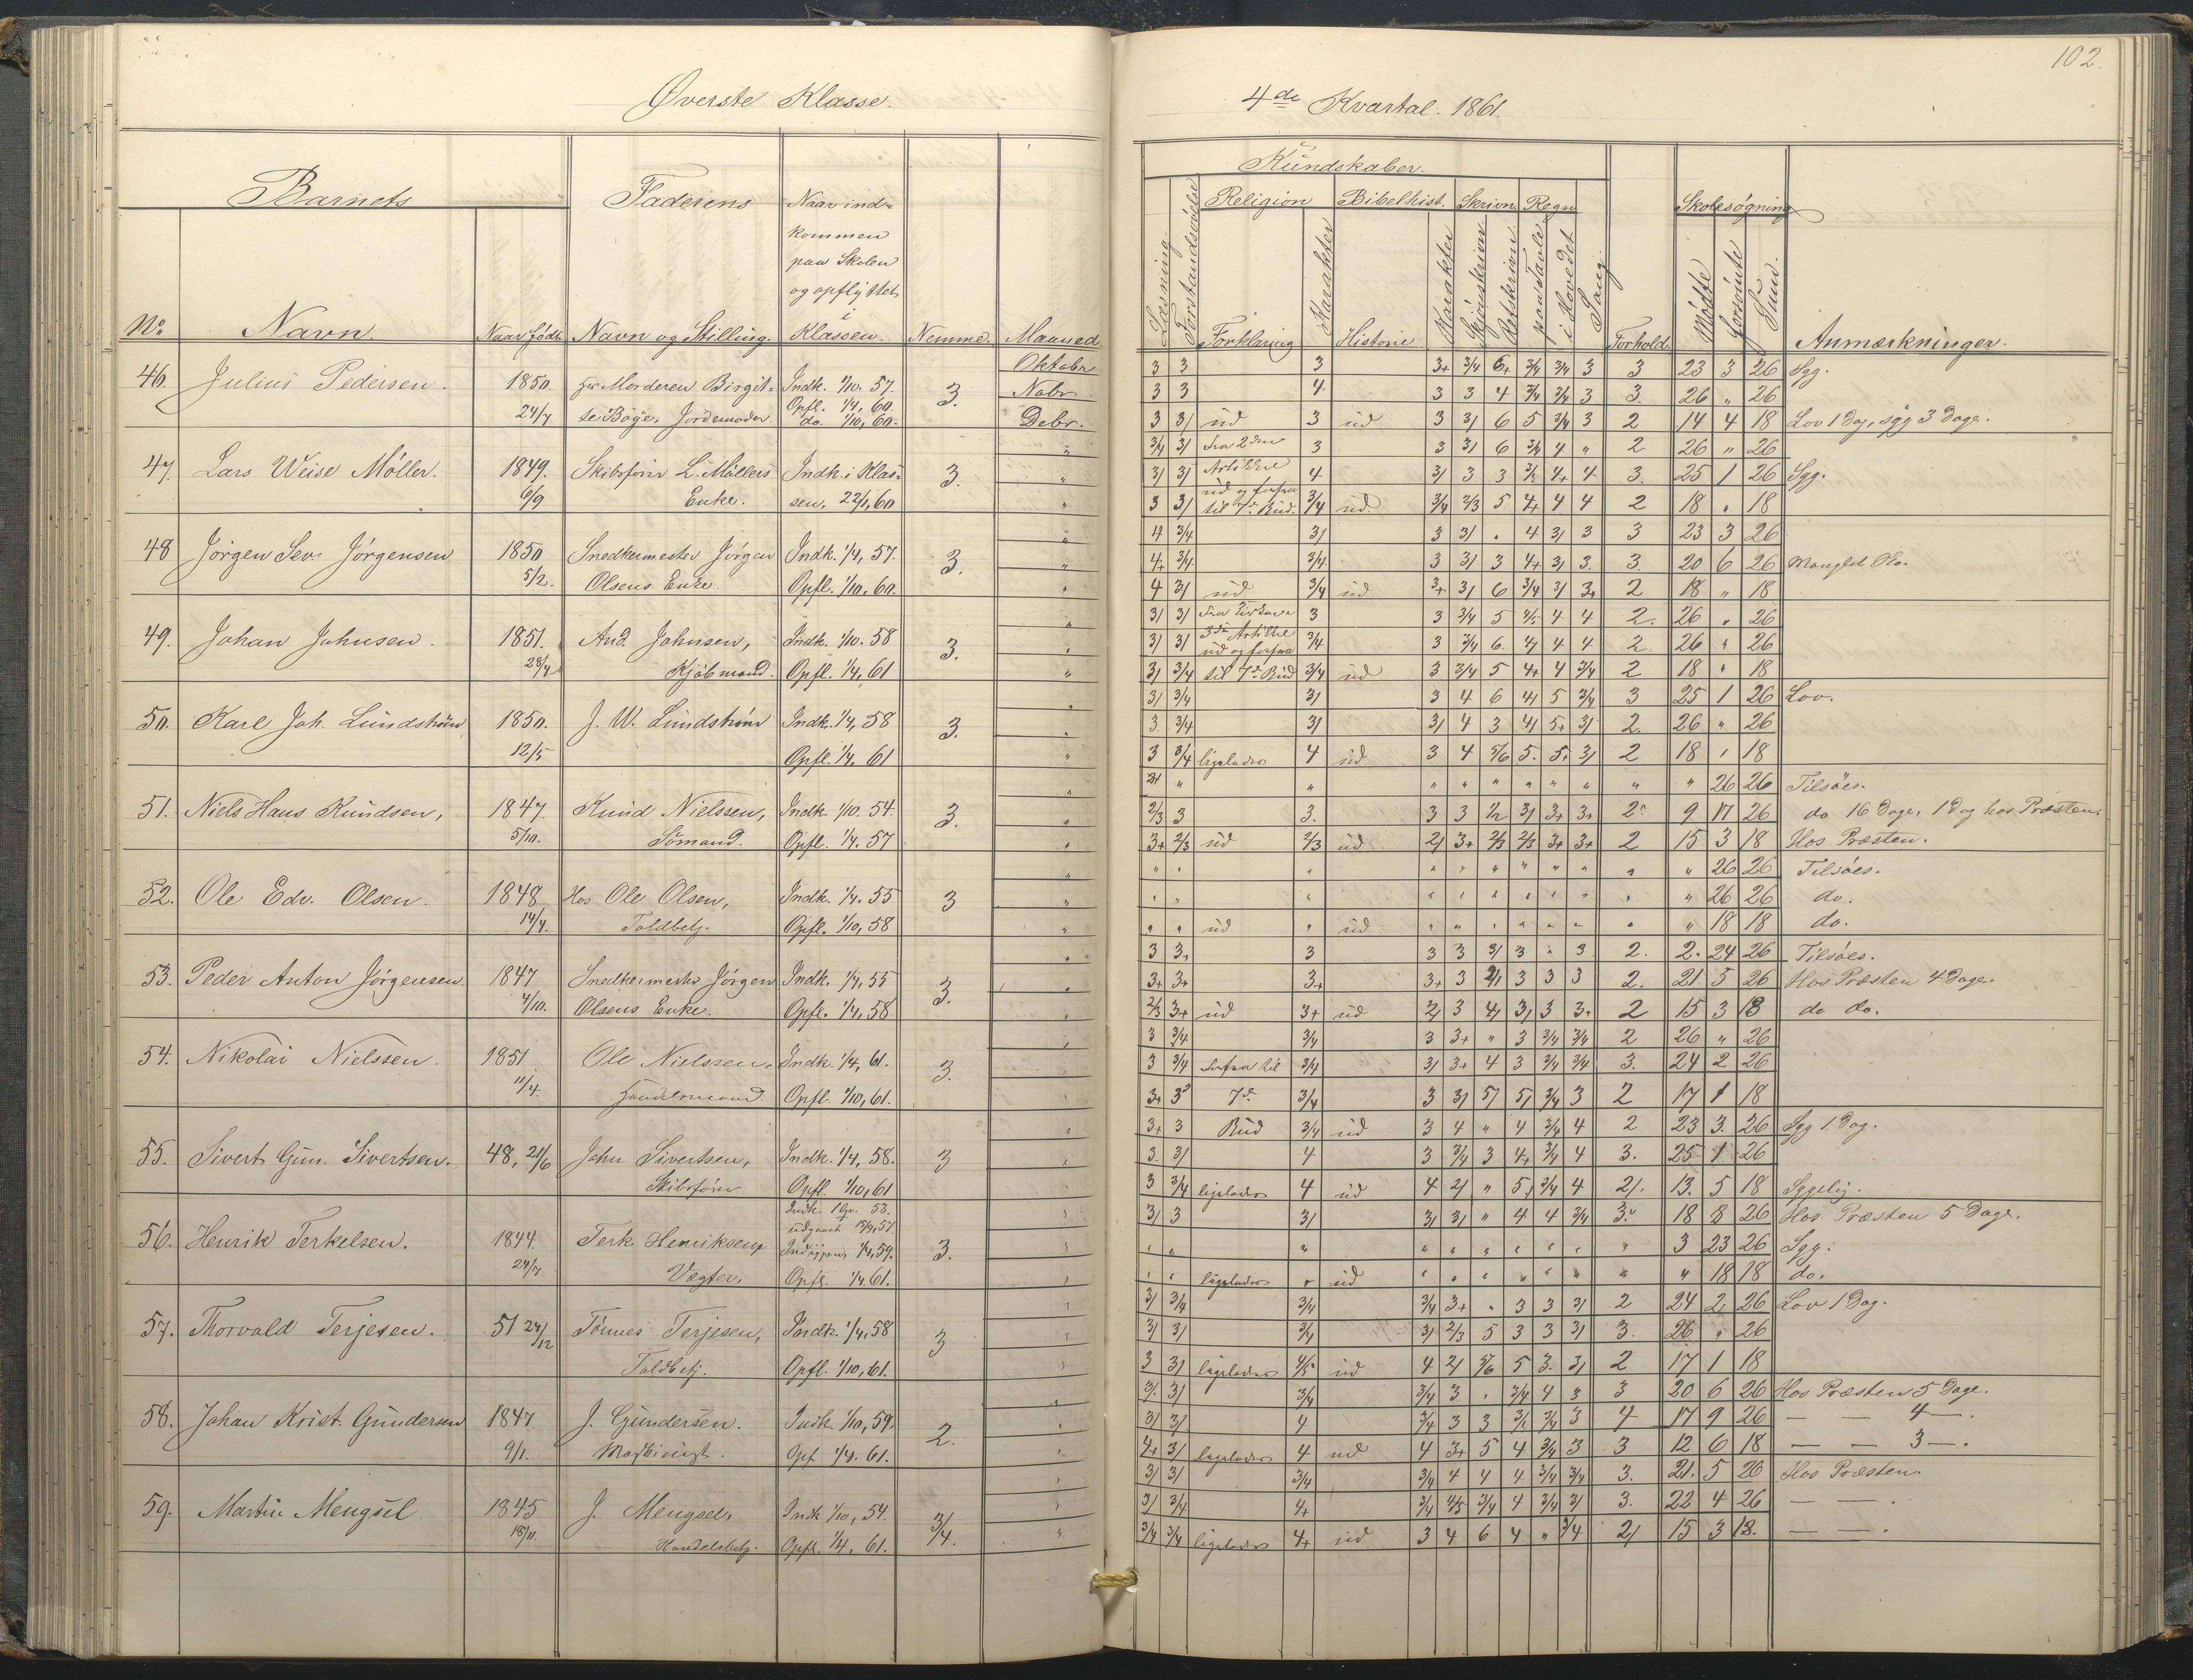 Øverste Klasse.
Barnets
Faderens
Naar ind-
kommen
paa Skolen
og opflyttet
i
Klassen.
No
Navn.
Naar født.
Navn og Stilling.
Nemme.
Maaned.
46. Julius Pedersen. 1850. Moderen Birgit- Indk. 1/10. 57. 3. Oktobr
24/7 te Bøye, Jordemoder. Opfl. 1/4, 60. Nobr
do. 1/10, 60. Debr.
47. Lars Weise Møller. 1849. Skibsfører L. Møllers Indk. i Klas- 3. "
6/9 Enke. sen, 22/1, 60 "
48 Jörgen Sev. Jörgensen 1850 Snedkermester Jörgen Indk. 1/4, 57. 3. "
5/2. Olsens Enke. Opfl. 1/10, 60. "
49. Johan Johnsen. 1851. And. Johnsen, Indk. 1/10. 58 3. "
28/4 Kjöbmand. Opfl. 1/4, 61 "
50. Karl Joh. Lundström 1850. J. W. Lundström Indk. 1/4, 58 3. "
12/5 Opfl. 1/4, 61 "
51. Niels Hans Knudsen, 1847. Knud Nielssen, Indk 1/10. 54. 3. "
5/10. Sömand. Opfl. 1/4. 57 "
52. Ole Edv. Olsen. 1848 Hos Ole Olsen, Indk. 1/4. 55 3 "
14/4. Toldbetj. Opfl. 1/10, 58 "
53. Peder Anton Jörgensen. 1847 Snedkermester Jörgen Indk. 1/4, 55 3. "
4/10. Olsens Enke. Opfl. 1/4, 58 "
54. Nikolai Nielssen. 1851 Ole Nielssen, Indk. 1/4, 61. 3. "
11/4. Handelsmand. Opfl. 1/10, 61. "
55. Sivert Gun. Sivertsen. 48, 21/6 John Sivertsen, Indk. 1/4, 58. 3 "
Skibsförer Opfl. 1/10, 61 "
56. Henrik Terkelsen. 1844. Terk. Henriksen, Indk. 53. 3. "
24/7 Vægter, udgaaet 57.
Indk. igjen 1/4, 59.
Opfl. 1/4 61.
57. Thorvald Terjesen. 51 24/12 Tönnes Terjesen, Indk. 1/4, 58 3 "
Toldbetj. Opfl. 1/10, 61. "
58. Johan Krist. Gundersen 1847 J. Gundersen. Indk. 1/10, 59. 2. "
9/1. Maskinist. Opf 1/4. 61. "
59. Martin Mengsel. 1845 J. Mengsel, Indk 1/10, 54. 3/4. "
18/11. Handelsbetj. Opfl. 1/4, 61. "
102.
4de Kvartal. 1861.
Kundskaber.
Religion Bibelhist. Skrivn. Regn
Skolesøgning
Læsning.
Forstandsøvelse
Forklaring
Karakter
Historie
Karakter
Skjönskrivn.
Retskrivn.
paa Tavle
i Hovedet
Sang.
Forhold.
Mødte
forsömte
Sum.
Anmærkninger.
3 3 3 3+ 3/4 6+ 3/4 3/4 3 3 23 3 26 Syg.
3 3 4 3 3 4 3/4 3/4 3 3. 26 " 26
3 3/ ud 3 ud 3 3/ 6 5 3/4 3 2 14 4 18 Lov 1 Dag, syg 3 Dage.
3/4 3/ fra 2den 3 3 3/ 6 3/4 4 " 2 26 " 26
3/ 3/ Artikkel 4 3/ 3 3 3/4 4+ 4 3. 25 1 26 Syg.
3 3/ ud og forfra til 7de Bud. 3/4 ud 3/4 2/3 5 4+ 4 4 2 18 " 18
4 3/4 3/ 3 3/ " 4 3/ 3 3 23 3 26
4+ 3/4 3/4 3 3/ 3 4+ 3/ 3. 3. 20 6 26 Manglet Sko.
4 3/ ud 3/4 ud 3+ 3/ 6 3/4 3/ 3+ 2 18 " 18
3/ 3/ 3 3 3/4 5 4/ 4 4 2. 26 " 26
3/ 3/ 3die Artikkel 3/4 3 3/4 6. 4/ 4 4 2. 26 " 26
3/ 3/4 ud og forfra til 7de Bud 3/4 ud 3 3/4 5 4+ 4 3/4 2 18 " 18
3/ 3/4 3/ 3 4 6 4/ 5 3/4 3 25 1 26 Lov.
3. 3/4 3/ 3/ 4 3 4/ 5+ 3/ 2. 26 " 26
3 3/4 ligeledes 4 ud 3 4 5/6 5. 5+ 3/ 2 18 " 18
" " " " " " " " " " " 26 26 Tilsöes.
2/3 3 3. 3 3 1/2 3/ 3+ 3+ 2 9 17 26 do 16 Dage, 1 Dag hos Præsten.
3+ 2/3 ud 2/3 ud 2/ 3+ 2/3 2/3 3+ 3+ 2 15 3 18 Hos Præsten.
" " " " " " " " " " " 26 26 Tilsöes.
" " " " " " " " " " " 26 26 do.
" " ud " ud " " " " " " " " 18 18 do.
3 3+ 3 3 3 3/ 3 " 3 2. 2. 24 26 Tilsöes.
3+ 3+ 3+ 3+ 3 2/ 3 3 3 2. 21 5 26 Hos Præsten 4 Dage.
2/3 3+ ud 3+ ud 2/ 3 4/ 3/ 3 3+ 2 15 3 18 do do.
3 3/4 3/4 3 3+ " 3 3/4 3/4 2 26 " 26
3 3/4 forfra til 3/4 3/ 3+ 4 3 3/4 3/4 3. 24 2 26
3+ 3 7de 3/4 3 3/ 5/ 5/ 3/4 3 2 17 1 18
3+ 3 Bud 3/4 ud 3 4 " 4 3/4 4 2 23 3. 26 Syg 1 Dag.
3. 3/ 4 3 3/4 3 4+ 3/4 4 3. 25 1 26
3 3/4 ligeledes 4 ud 4 2/ " 5+ 3/4 4 2/. 13. 5 18 Sygelig.
3/ 3 3/ 3/ 3/ " 4 4 3/4 3. 18 8 26 Hos Præsten 5 Dage.
" " " " " " " " " " 3 23 26 Syg.
" " ligeledes " ud " " " " " " " " 18 18 do.
3/ 3/4 3/4 3/4 3+ " 3 3 3/ 2 24 2 26 Lov 1 Dag.
3/ 3/ 3/4 3/ 2/3 5 3 3 3/ 3. 26 " 26
3 3/ ligeledes 4/5 ud 4 2/ 5/6 5 3. 3/ 2 17 1 18
3/. 3/ 3/4 3/4 3 " 3/4 4 3 3 20 6 26 Hos Præsten 5 Dage.
3/ 3/ 4 3/4 3 3 3/. 3/4 3 4 17 9 26 — — 4 —.
4+ 3/ ligeledes 4 ud 4 3+ 5 4 3/4 3 3 12 6 18 — — 3 —.
3/ 3/ 3/4 3/4 4 4 4 3/4 3/4 3. 21. 5 26 Hos Præsten
3/ 3/4 4+ 3/4 4/5 3/4 4 3/4 3/ 3. 22 4 26 — — .
3/4 3/4 ligeledes 4+ ud 3 4 6 4 " 3/4 2/ 15 3 18. — — .